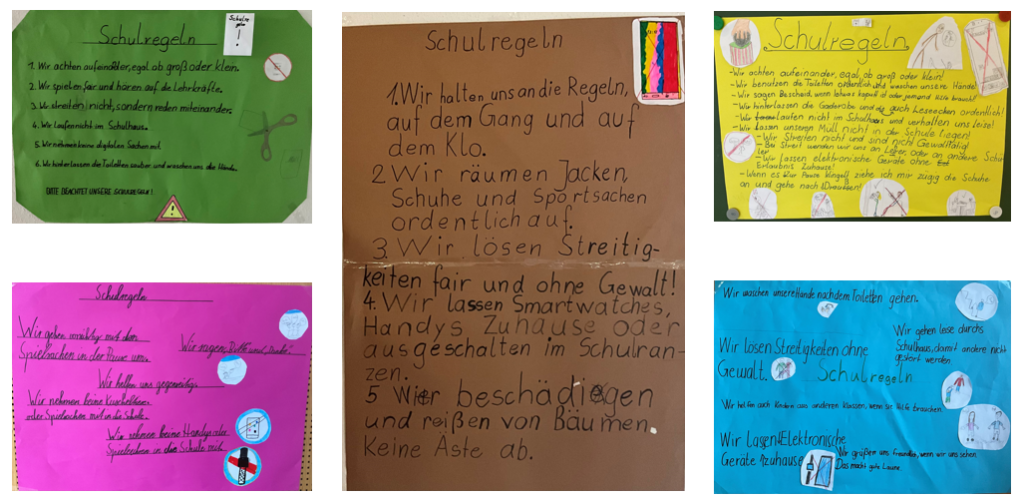 Schulregeln
Schulre
gel
!
1. Wir achten aufeinander, egal ob groß oder klein.
2. Wir spielen fair und hören auf die Lehrkräfte.
3. Wir streiten nicht, sondern reden miteinander.
4. Wir laufen nicht im Schulhaus.
5. Wir nehmen keine digitalen Sachen mit.
6. Wir hinterlassen die Toiletten sauber und waschen uns die Hände.
BITTE BEACHTET UNSERE SCHULREGELN!
Schulregeln
1. Wir halten uns an die Regeln,
auf dem Gang und auf
dem Klo.
2 Wir räumen Jacken,
Schuhe und Sportsachen
ordentlich auf.
3. Wir lösen Streitig-
keiten fair und ohne Gewalt!
4. Wir lassen Smartwatches,
Handys Zuhause oder
ausgeschalten im Schulran-
zen.
5 Wier beschädiegen
und reißen von Bäumen
keine Äste ab.
Schulregeln
-Wir achten aufeinander, egal ob groß oder klein!
-Wir benutzen die Toiletten ordentlich und waschen unsere Hände
-Wir sagen Bescheid, wenn etwas kaputt ist oder jemand Hilfe braucht!
-Wir hinterlassen die Gaderobe und die auch Leseecken ordentlich!
-Wir laufen nicht im Schulhaus und verhalten uns leise!
-Wir lassen unseren Müll nicht in der Schule liegen!
-Wir Streiten nicht und sind nicht Gewalttätig!
-Bei Streit wenden wir uns an Lehrer, oder an andere Schü
ler
-Wir lassen elektronische Geräte ohne
Erlaubnis Zuhause!
-Wenn es zur Pause klingelt ziehe ich mir zügig die Schuhe
an und gehe nach Draußen!
Schulregeln
Wir gehen vorsichtig mit den
Spielsachen in der Pause um.
Wir sagen Bitte und Danke.
Wir helfen uns gegenseitig.
Wir nehmen keine Kuscheltiere
oder Spielsachen mit in die Schule.
Wir nehmen keine Handys oder
Spielsachen in die Schule mit.
Wir waschen unsere Hände nach dem Toiletten gehen.
Wir gehen leise durchs
Schulhaus, damit andere nicht
gestört werden.
Wir lösen Streitigkeiten ohne
Gewalt.
Schulregeln
Wir helfen auch Kindern aus anderen Klassen, wenn sie Hilfe brauchen.
Wir lassen Elektronische
Geräte zuhause
Wir grüßen uns freundlich, wenn wir uns sehen.
Das macht gute Laune.